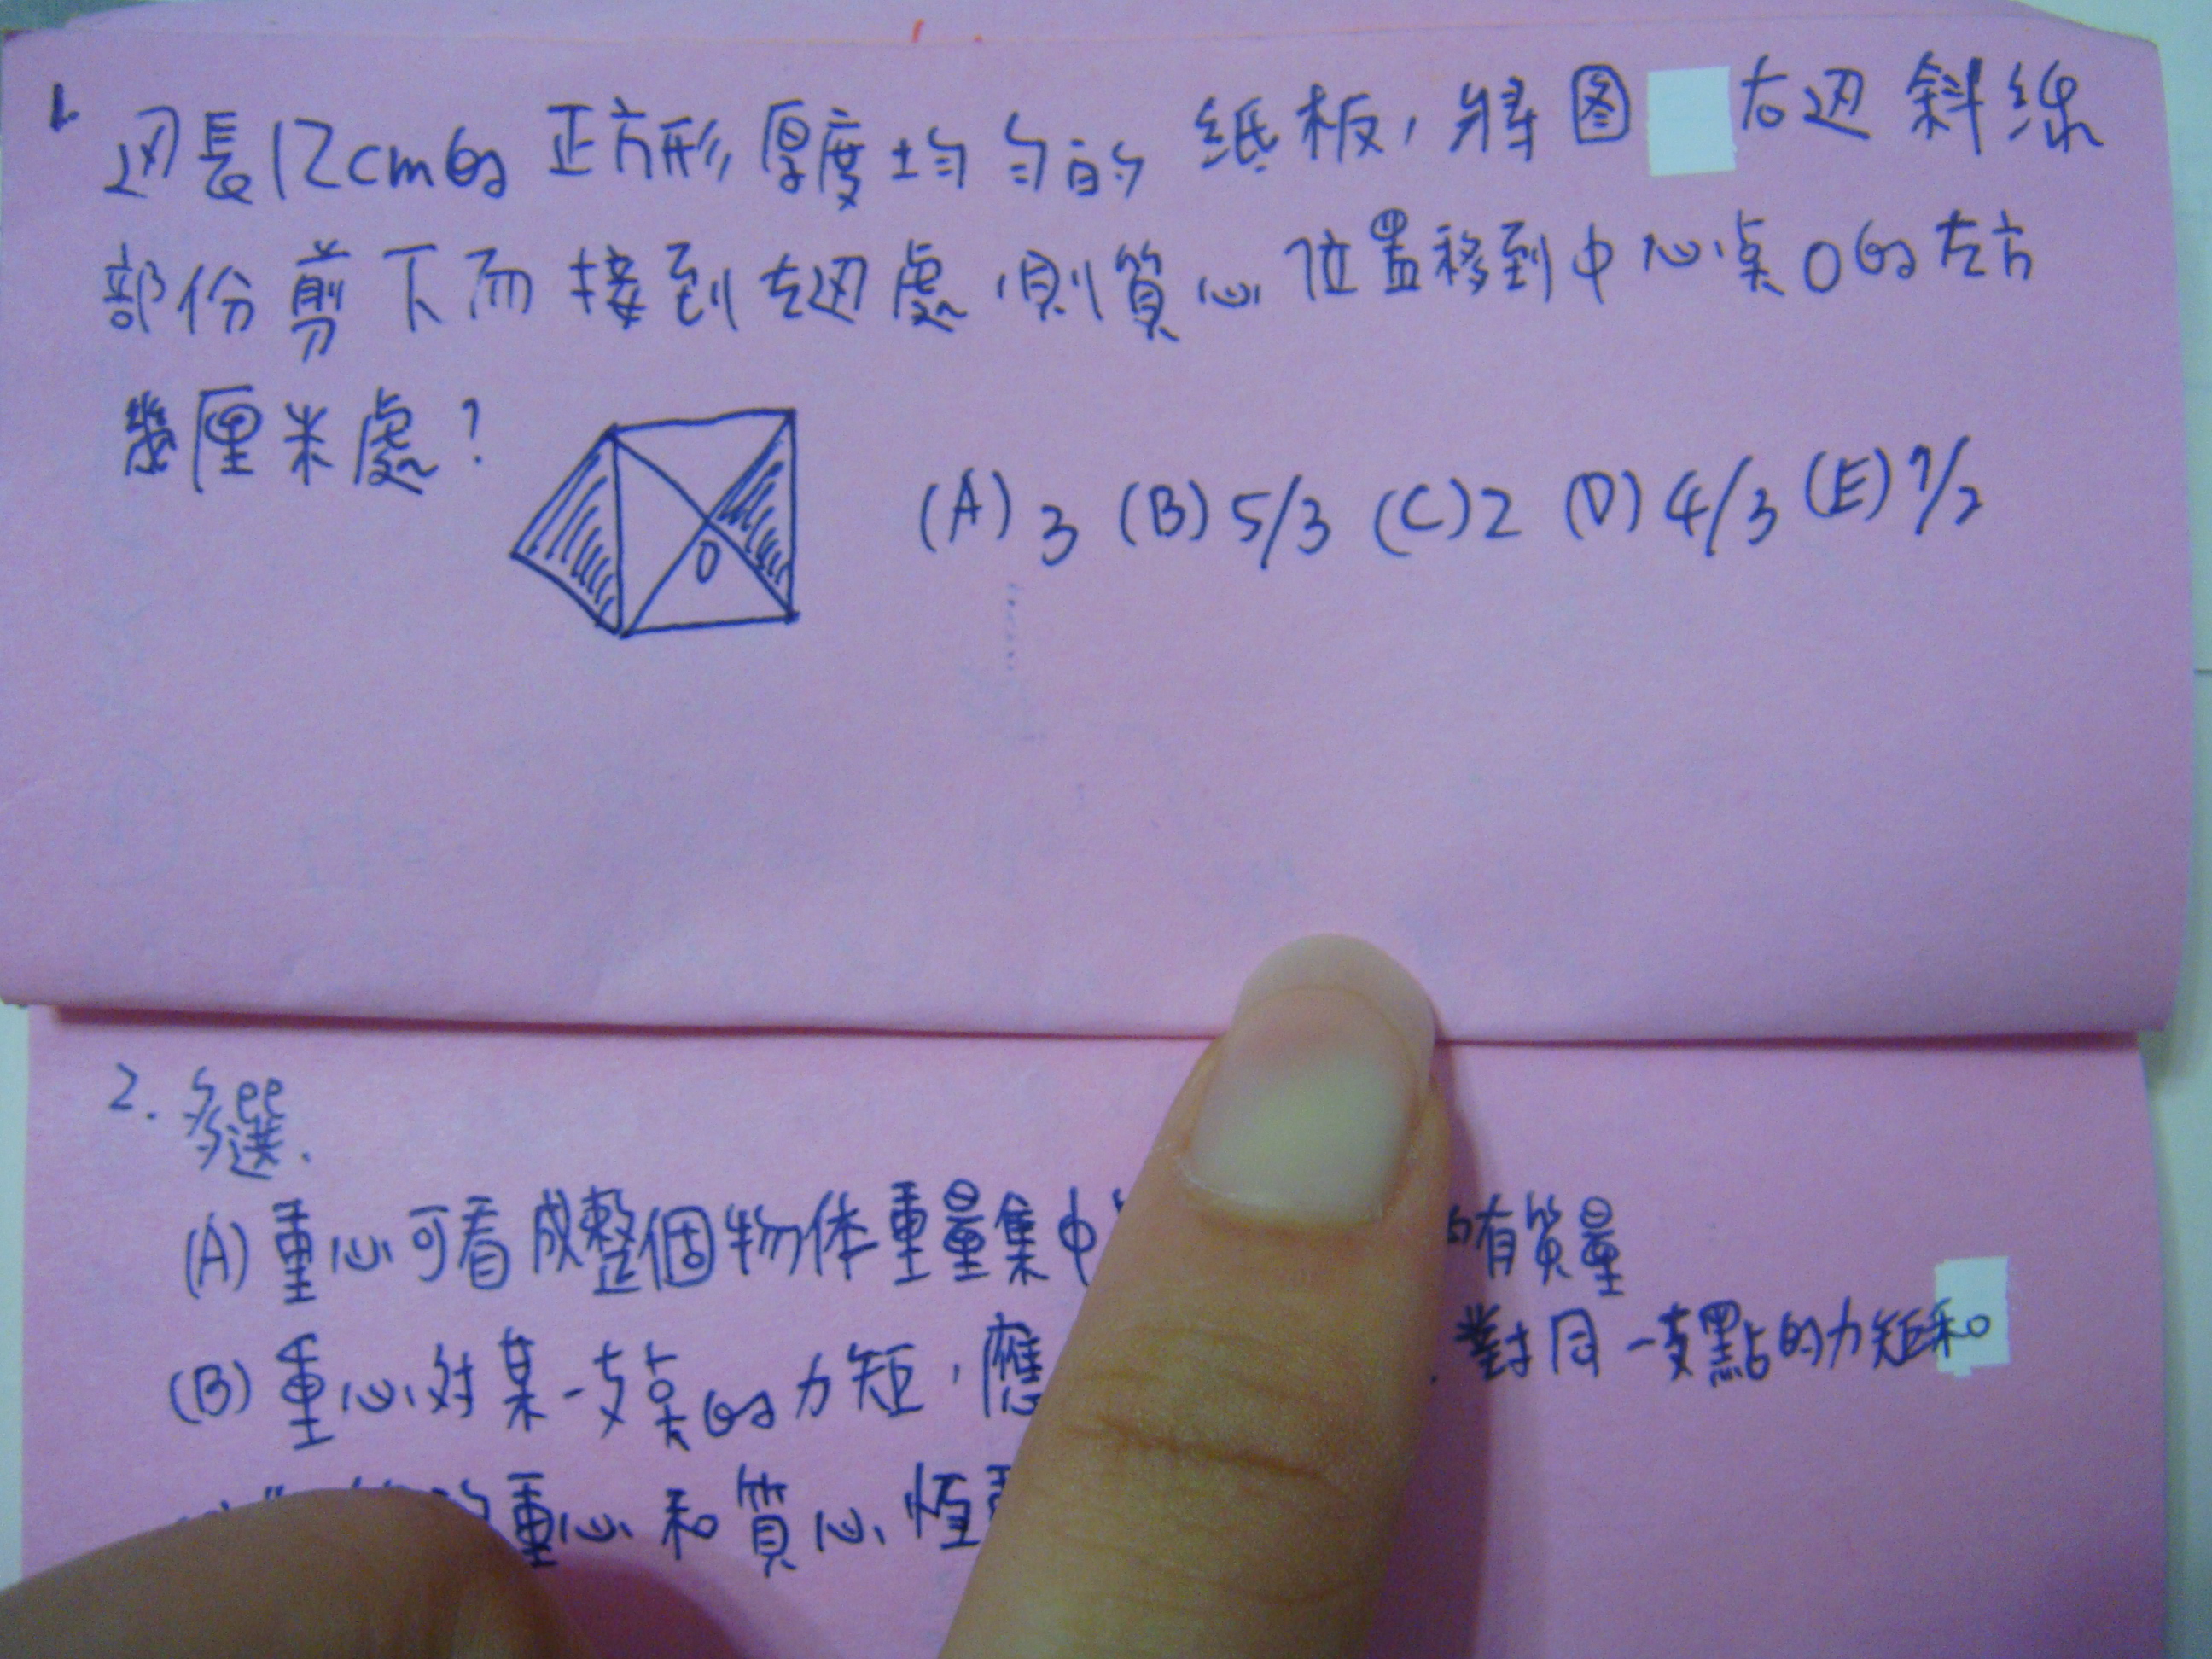 1. 边長12cm的正方形厚度均匀的纸板，將图右边斜线
部份剪下而接到左边處，則質心位置移到中心点O的左方
幾厘米處？
O
(A) 3 (B) 5/3 (C) 2 (D) 4/3 (E) 7/2
2. 多選.
(A) 重心可看成整個物体重量集中 有質量
(B) 重心对某一支点的力矩，應 對同一支點的力矩和
重心和質心恆